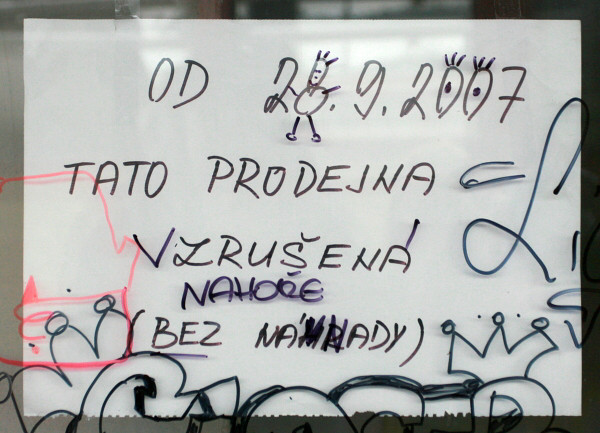 OD 28.9.2007
TATO PRODEJNA
VZRUŠENÁ
NAHOŘE
(BEZ NÁHRADY)